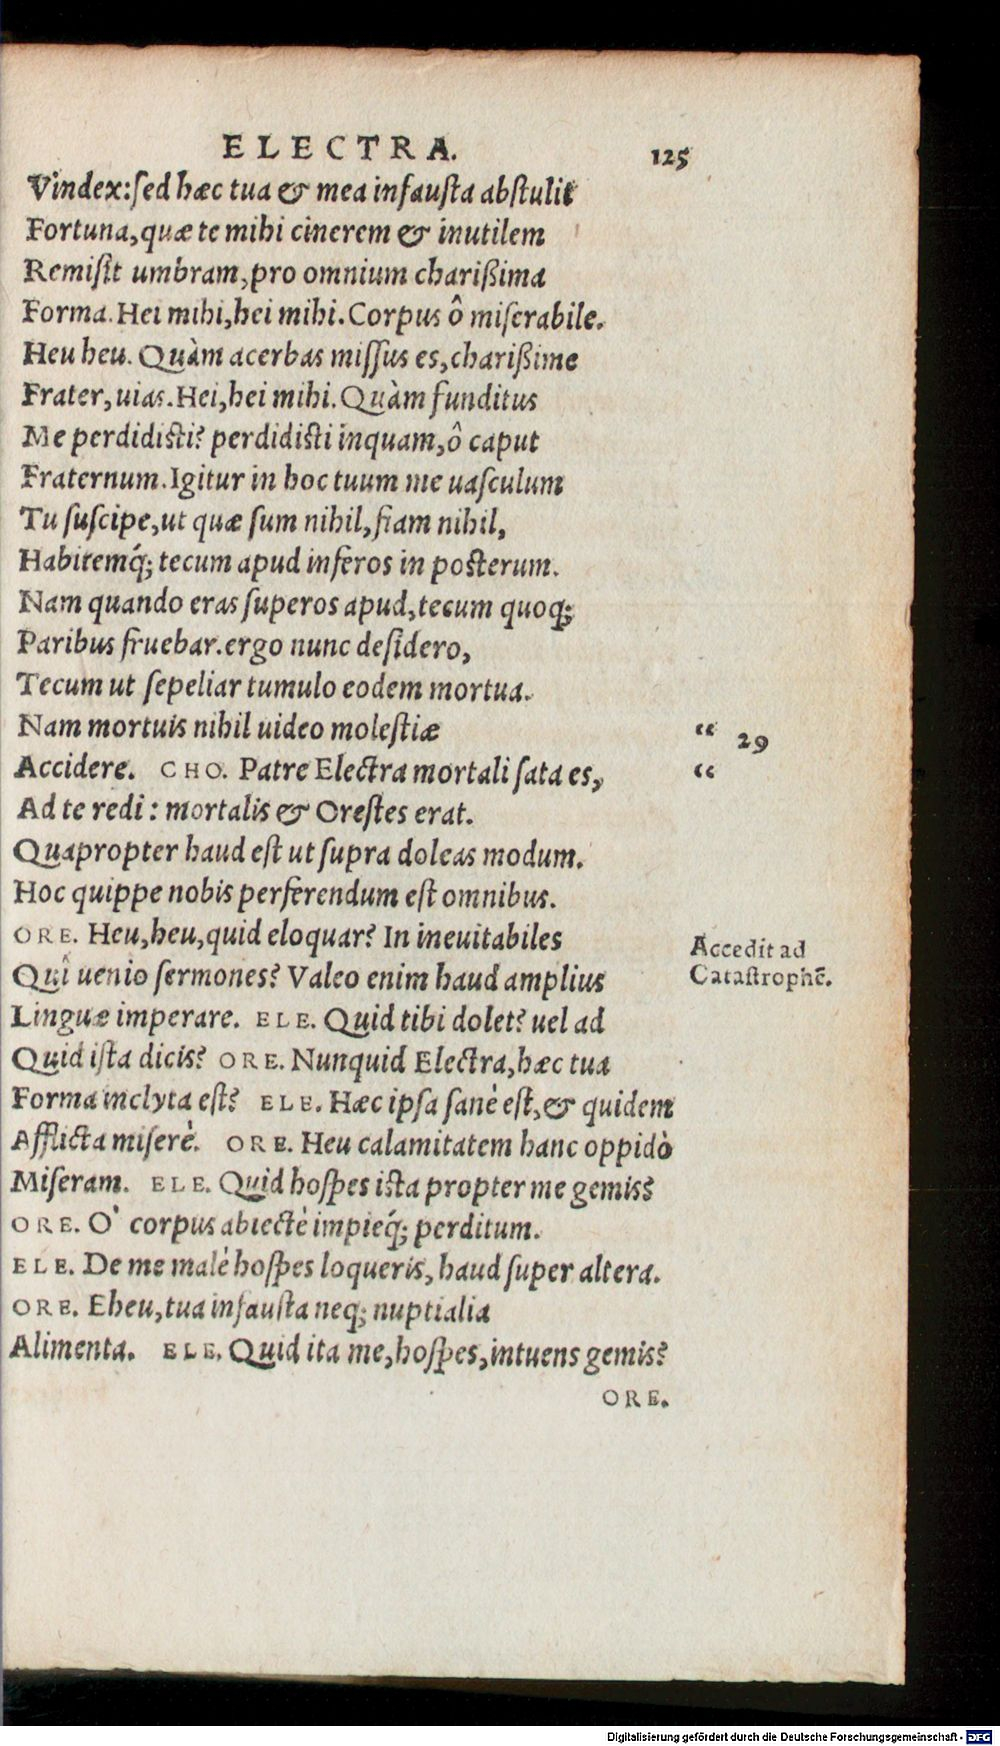 ELECTRA. 125
Vindex: sed hæc tua & mea infausta abstulit
Fortuna, quæ te mihi cinerem & inutilem
Remisit umbram, pro omnium charißima
Forma. Hei mihi, hei mihi. Corpus ô miserabile.
Heu heu. Quàm acerbas missus es, charißime
Frater, uias. Hei, hei mihi. Quàm funditus
Me perdidisti? perdidisti inquam, ô caput
Fraternum. Igitur in hoc tuum me uasculum
Tu suscipe, ut quæ sum nihil, fiam nihil,
Habitemq́; tecum apud inferos in posterum.
Nam quando eras superos apud, tecum quoq;
Paribus fruebar. ergo nunc desidero,
Tecum ut sepeliar tumulo eodem mortua.
Nam mortuis nihil uideo molestiæ “ 29
Accidere. CHO. Patre Electra mortali sata es, “
Ad te redi: mortalis & Orestes erat.
Quapropter haud est ut supra doleas modum.
Hoc quippe nobis perferendum est omnibus.
ORE. Heu, heu, quid eloquar? In ineuitabiles
Accedit ad
Quî uenio sermones? Valeo enim haud amplius
Catastrophē.
Linguæ imperare. ELE. Quid tibi dolet? uel ad
Quid ista dicis? ORE. Nunquid Electra, hæc tua
Forma inclyta est? ELE. Hæc ipsa sanè est, & quidem
Afflicta miserè. ORE. Heu calamitatem hanc oppidò
Miseram. ELE. Quid hospes ista propter me gemis?
ORE. O` corpus abiectè impieq́; perditum.
ELE. De me malè hospes loqueris, haud super altera.
ORE. Eheu, tua infausta neq; nuptialia
Alimenta. ELE. Quid ita me, hospes, intuens gemis?
ORE.
Digitalisierung gefördert durch die Deutsche Forschungsgemeinschaft - DFG